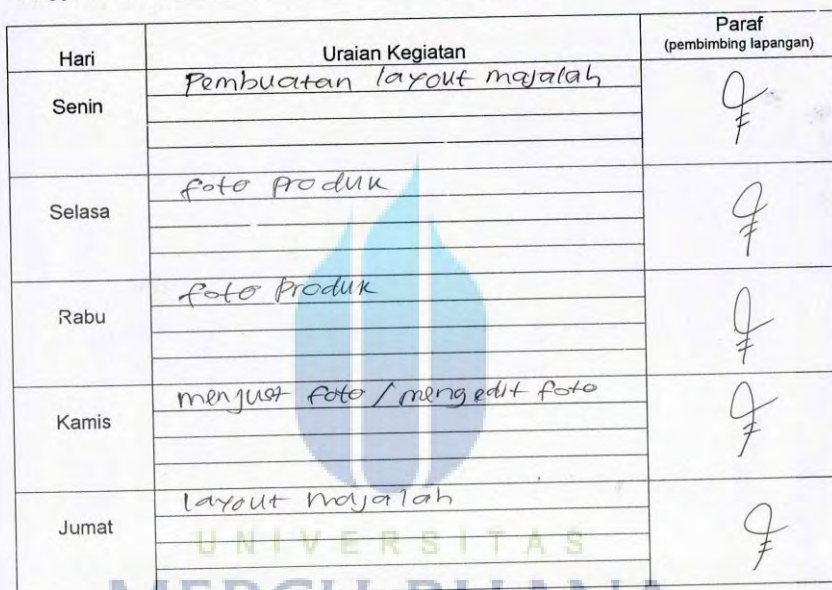 Hari Uraian Kegiatan Paraf
(pembimbing lapangan)
Senin Pembuatan layout majalah
Selasa foto produk
Rabu foto produk
Kamis menjust foto / mengedit foto
Jumat layout majalah
UNIVERSITAS
MERCU BUANA